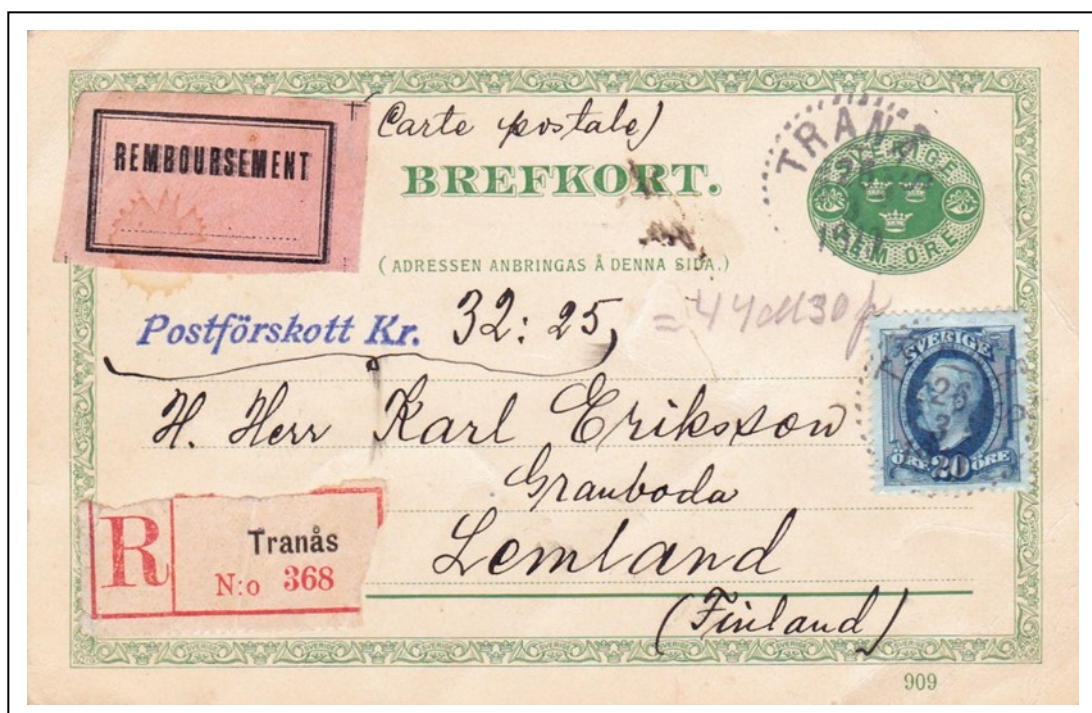 REMBOURSEMENT
(Carte postale)
BREFKORT.
TRANÅS
SVERIGE
FEM ÖRE
(ADRESSEN ANBRINGAS Å DENNA SIDA.)
Postförskott Kr. 32:25
= 44 M 30 p
SVERIGE
ÖRE 20 ÖRE
26
H. Herr Karl Eriksson
Granboda
Lemland
(Finland)
R
Tranås
N:o 368
909